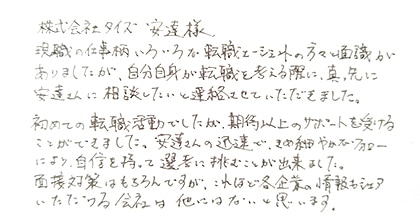 株式会社タイズ 安達様
現職の仕事柄いろいろな転職エージェントの方々と面識が
ありましたが、自分自身が転職を考える際に、真先に
安達さんに相談したいと連絡させていただきました。
初めての転職活動でしたが、期待以上のサポートを受ける
ことができました。安達さんの迅速で、きめ細やかなフォロー
により、自信を持って選考に挑むことが出来ました。
面接対策はもちろんですが、これほど各企業の情報もシェア
いただける会社は他にはないと思います。